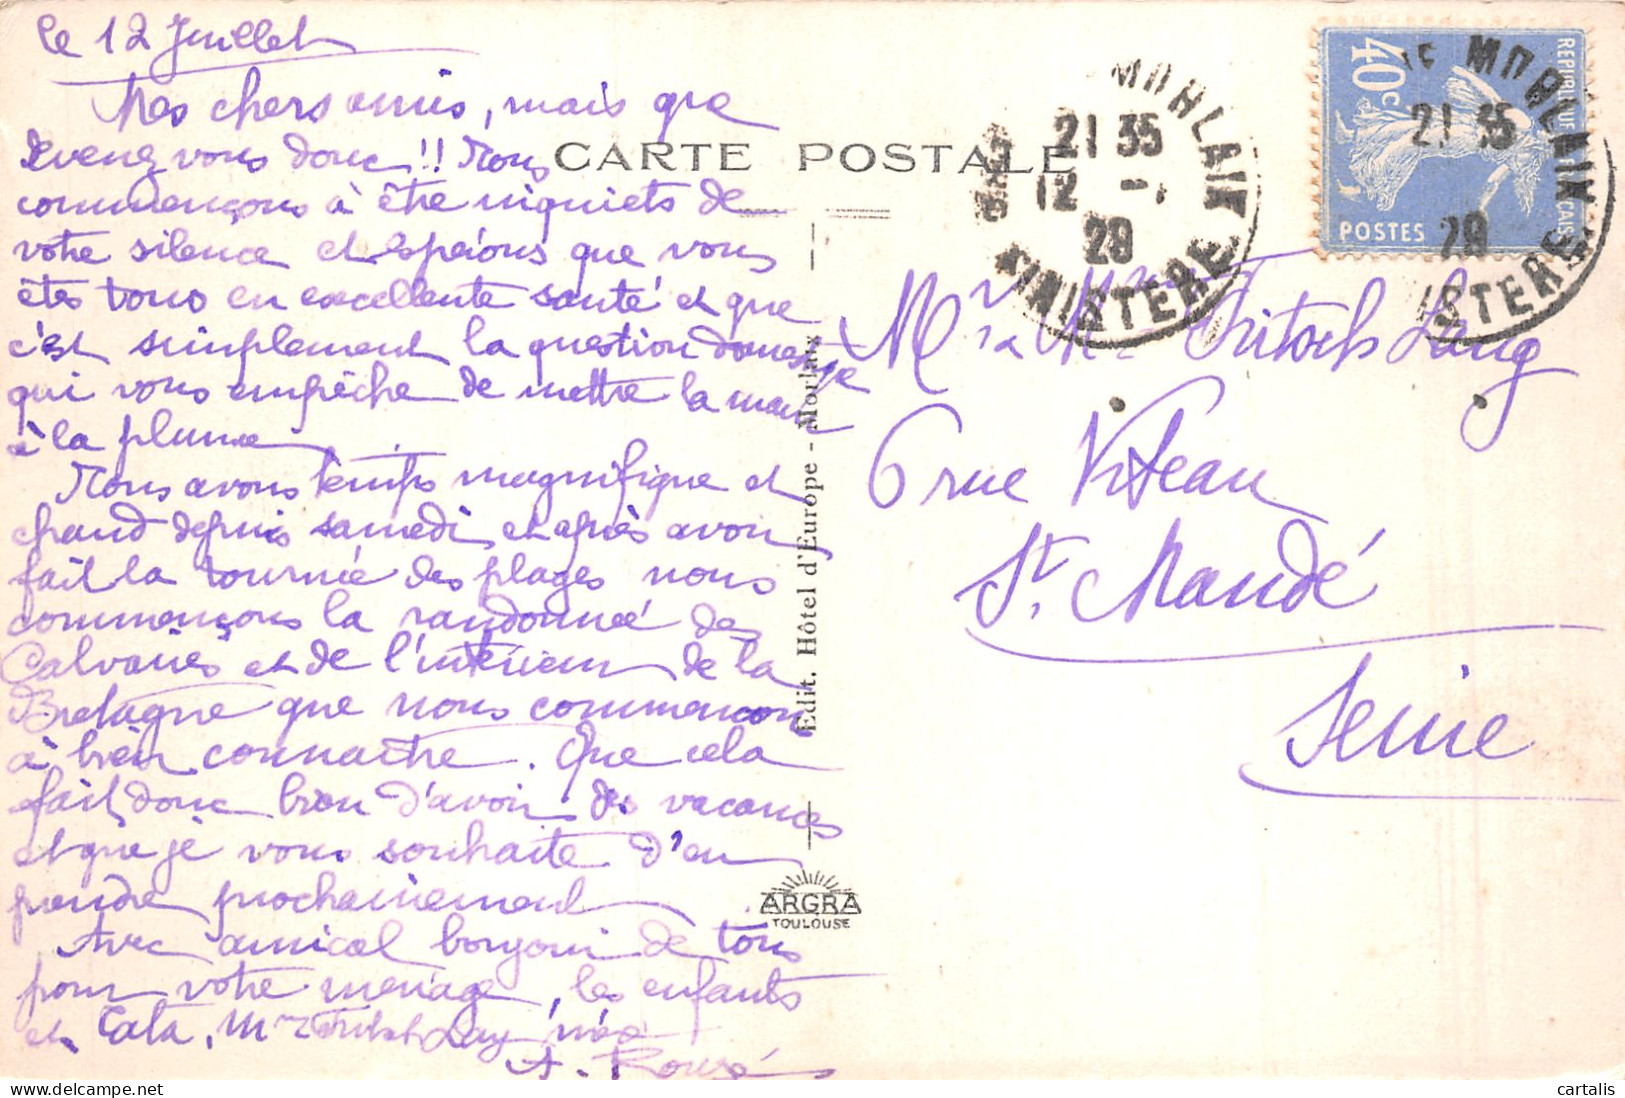 le 12 Juillet
Mes chers amis, mais que
devenez vous donc !! Nous
commençons à être inquiets de
votre silence et espérons que vous
êtes tous en excellente santé et que
c'est simplement la question domestique
qui vous empêche de mettre la main
à la plume
Nous avons temps magnifique et
chaud depuis samedi et après avoir
fait la tournée des plages nous
commençons la randonnée des
Calvaires et de l'intérieur de la
Bretagne que nous commençons
à bien connaître. Que cela
fait donc bien d'avoir des vacances
et que je vous souhaite d'en
prendre prochainement
Avec amical bonjour de tous
pour votre ménage, les enfants
et Tata, Mme Fritsch Lang
A. Rouzé
CARTE POSTALE
Edit. Hôtel d'Europe - Morlaix
ARGRA
TOULOUSE
MORLAIX
21 35
12 -
29
FINISTERE
REPUBLIQUE FRANÇAISE
40c
POSTES
MORLAIX
21 35
29
ISTERE
Mr & Mme Fritsch Lang
6 rue Viteau
St. Mandé
Seine
cartalis